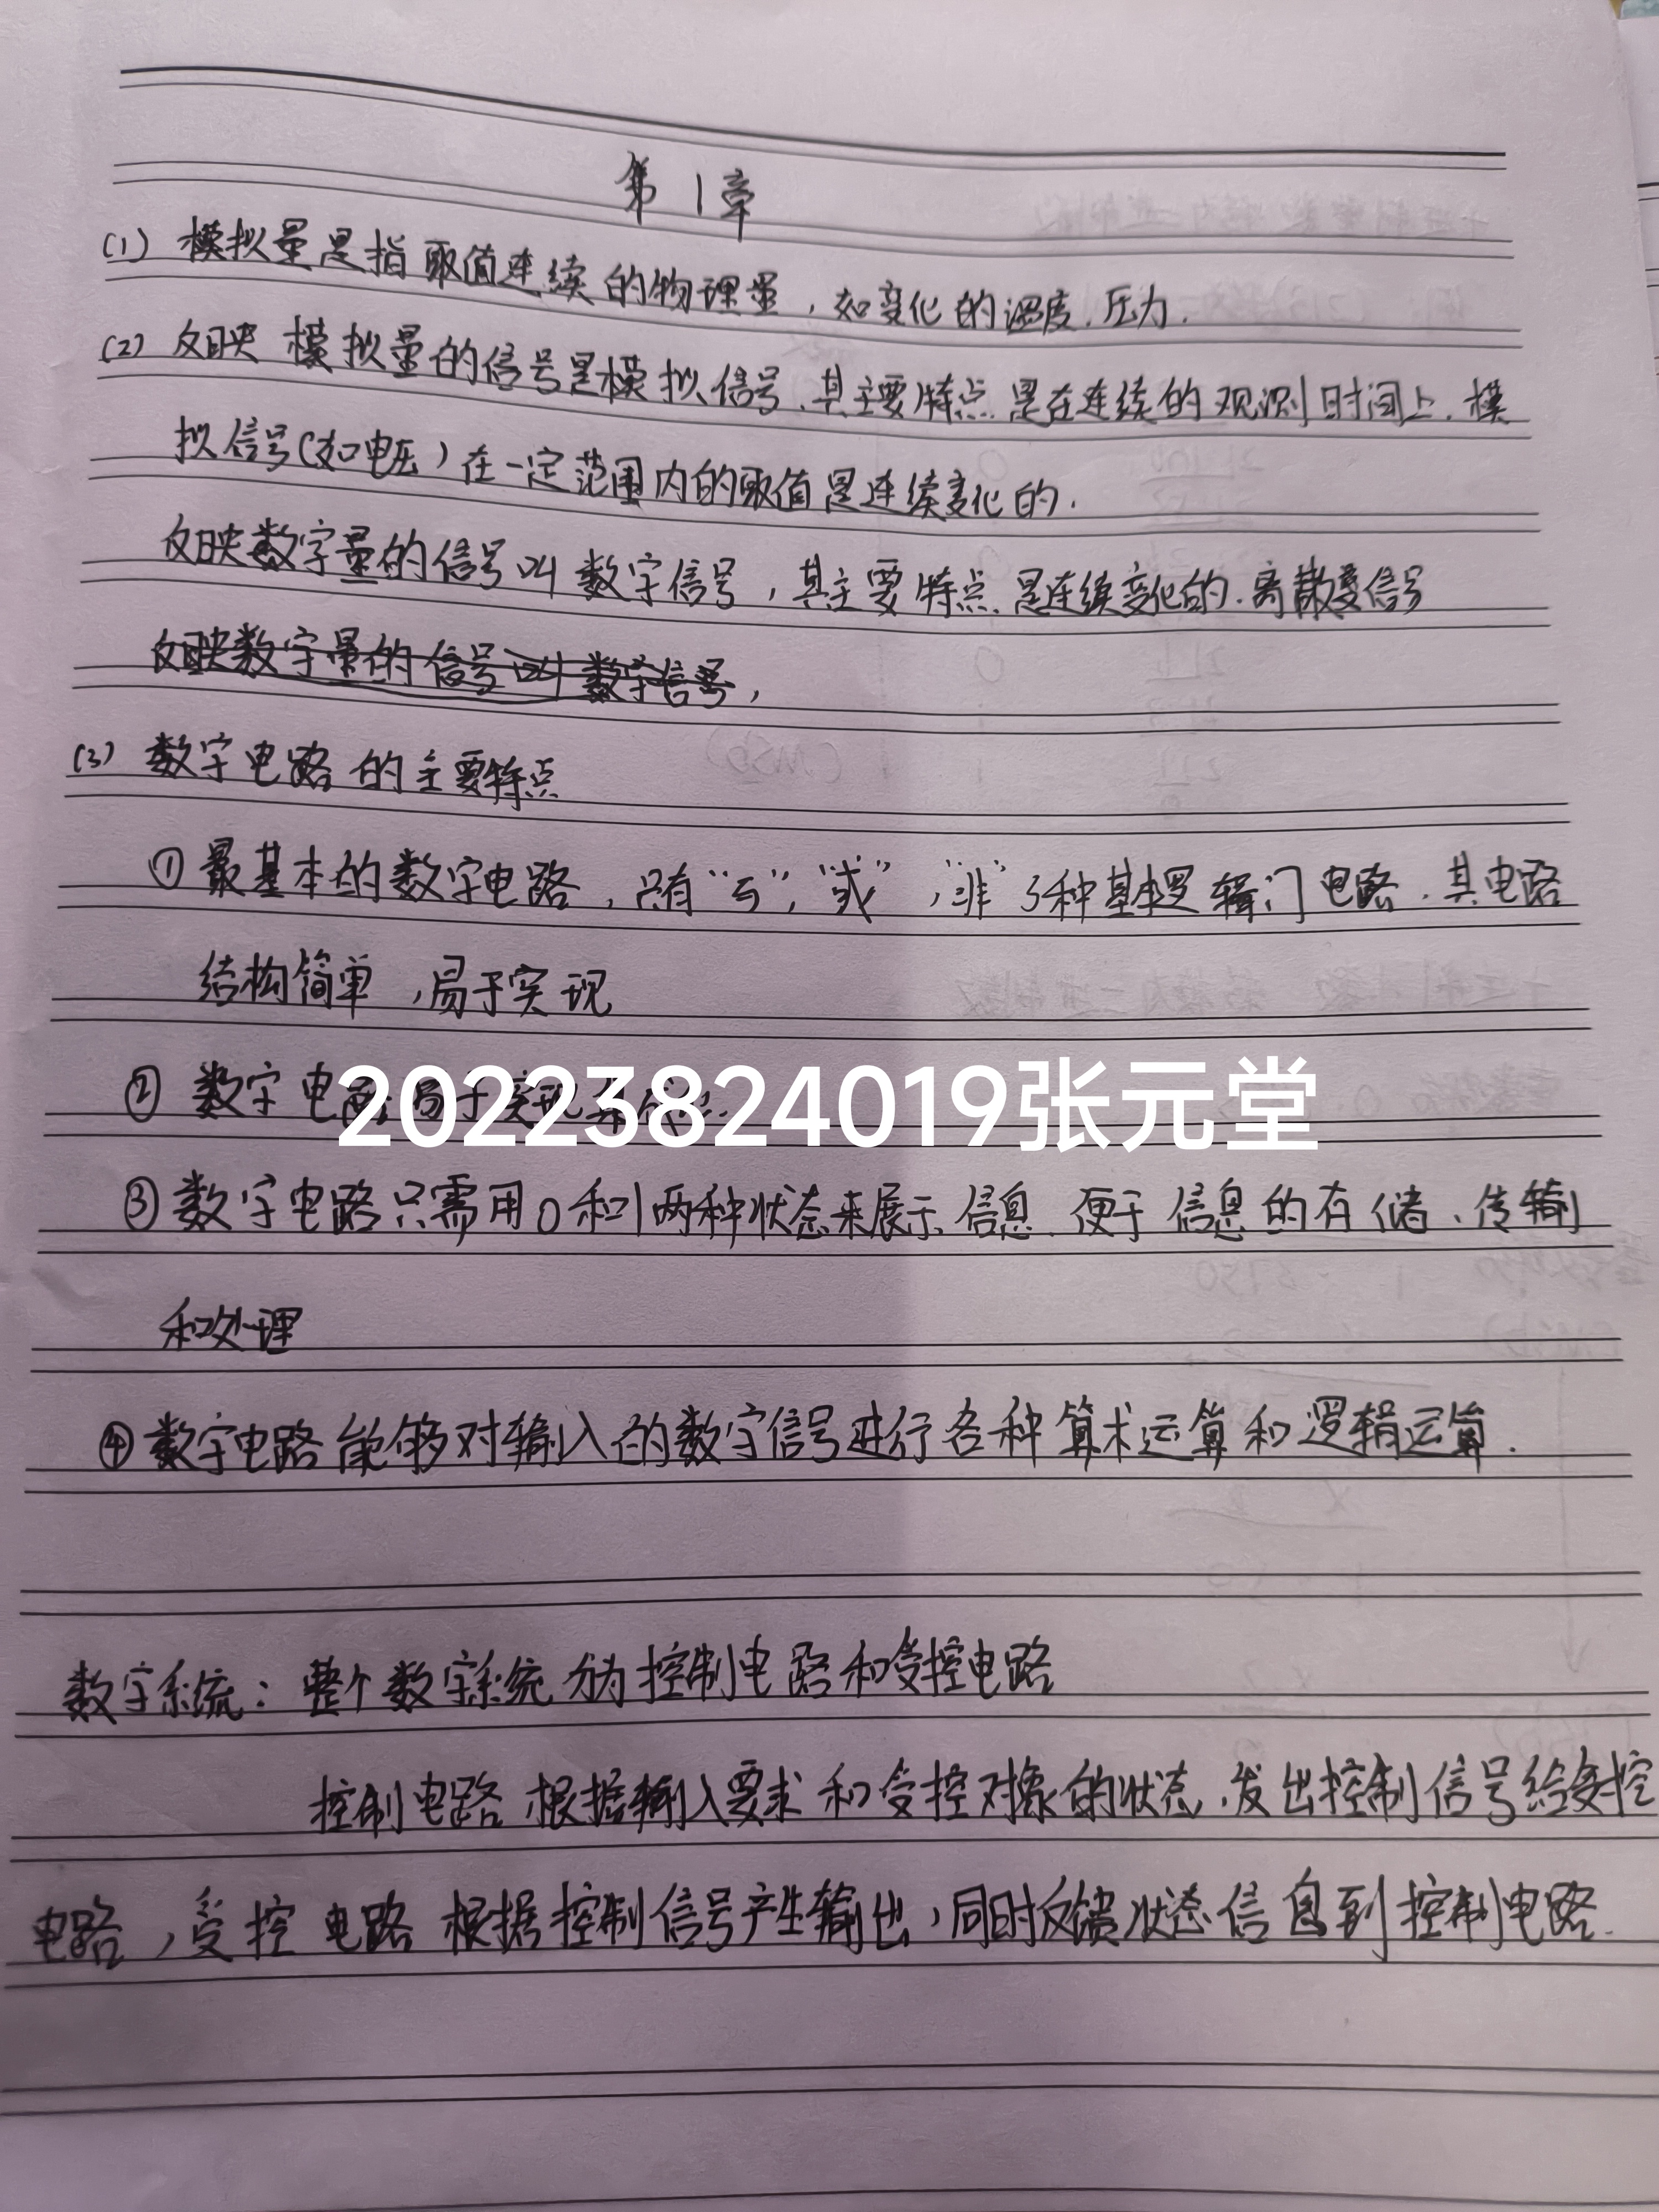 第1章
(1) 模拟量是指取值连续的物理量，如变化的温度、压力.
(2) 反映模拟量的信号是模拟信号、其主要特点是在连续的观测时间上、模
拟信号(如电压)在一定范围内的取值是连续变化的.
反映数字量的信号叫数字信号，其主要特点是连续变化的、离散信号
反映数字量的信号叫数字信号，
(3) 数字电路的主要特点
① 最基本的数字电路，只有“与”，“或”，“非”3种基本逻辑门电路、其电路
结构简单，易于实现
② 数字电路易于实现
20223824019张元堂
③ 数字电路只需用0和1两种状态来展示信息、便于信息的存储、传输
和处理
④ 数字电路能够对输入的数字信号进行各种算术运算和逻辑运算.
数字系统：整个数字系统分为控制电路和受控电路
控制电路根据输入要求和受控对象的状态，发出控制信号给受控
电路，受控电路根据控制信号产生输出，同时反馈状态信息到控制电路.